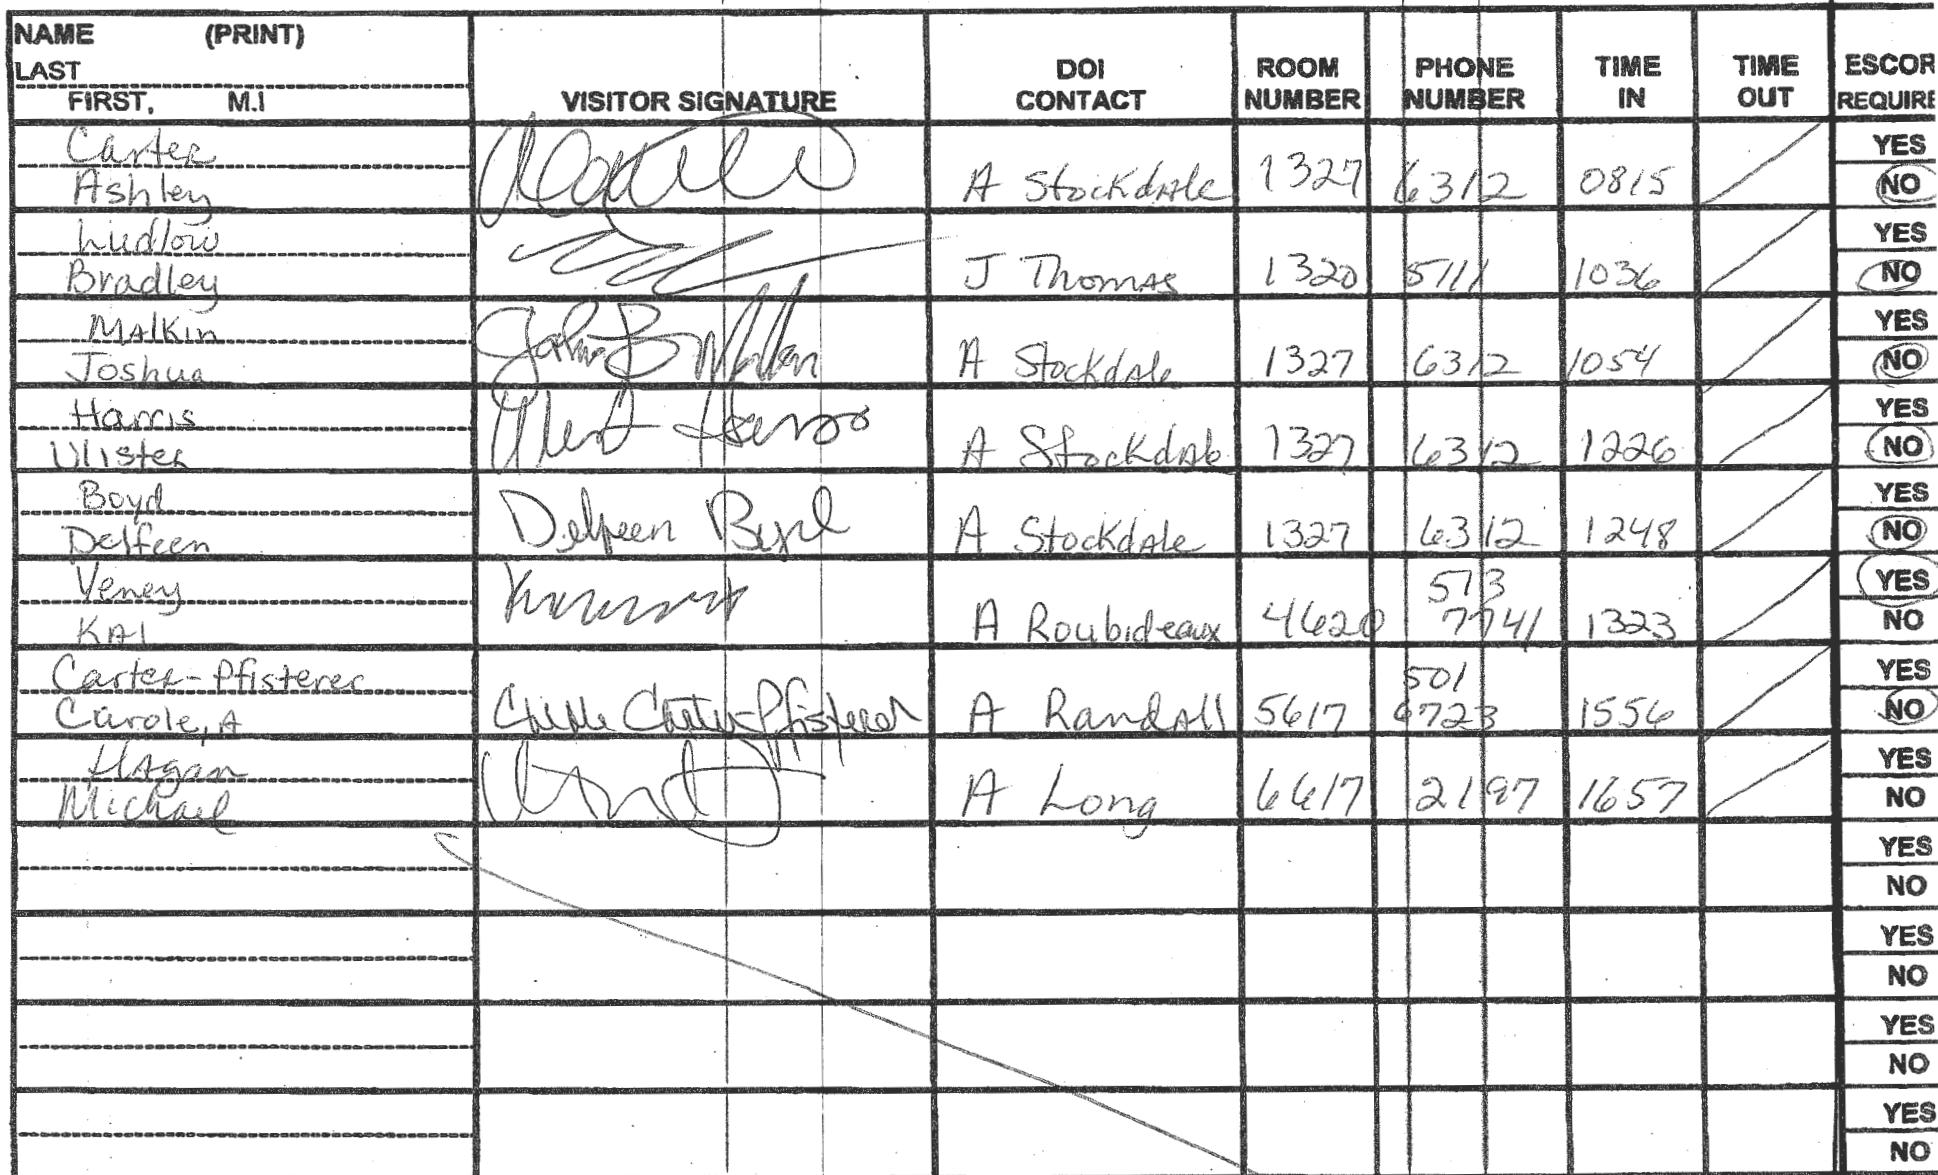 NAME (PRINT)
LAST
FIRST, M.I
VISITOR SIGNATURE
DOI CONTACT
ROOM NUMBER
PHONE NUMBER
TIME IN
TIME OUT
ESCOR
REQUIRE
Carter
Ashley
A Stockdale 1327 6312 0815
YES
NO
Ludlow
Bradley
J Thomas 1320 5111 1036
YES
NO
Malkin
Joshua
A Stockdale 1327 6312 1054
YES
NO
Harris
A Stockdale 1327 6312 1226
YES
NO
Boyd
Delfeen
Delfeen Boyd
A Stockdale 1327 6312 1248
YES
NO
Veney
KAI
A Roubideaux 4620 513 7741 1323
YES
NO
Carter-Pfisterer
Carole, A
Carole Carter-Pfisterer
A Randall 5617 501 6723 1556
YES
NO
Hagan
Michael
A Long 6617 2197 1657
YES
NO
YES
NO
YES
NO
YES
NO
YES
NO